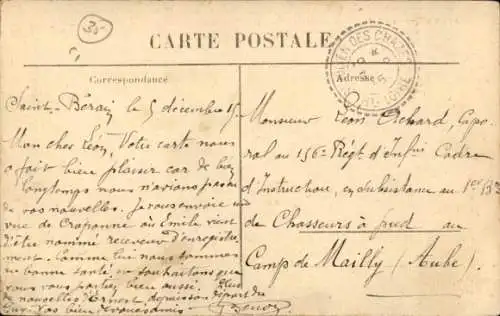 35
CARTE POSTALE
Correspondance
Adresse
Saint-Bérain le 5 décembre 15
Mon cher Léon, Votre carte nous
a fait bien plaisir car de bien
longtemps nous n'avions pas eu
de vos nouvelles. Je vous envoie une
vue de Craponne où Emile vient
d'être nommé receveur d'enregistre
ment. Comme lui nous sommes
en bonne santé et souhaitons que
vous vous portiez bien aussi. Plus
de nouvelles d'Ernest depuis son départ du
Puy. Vos bien dévoués amis
Monsieur Léon Achard, Capo-
ral au 156e Régt d'Infie Cadre
d'Instruction, en subsistance au 1er Bon
de Chasseurs à pied au
Camp de Mailly (Aube).